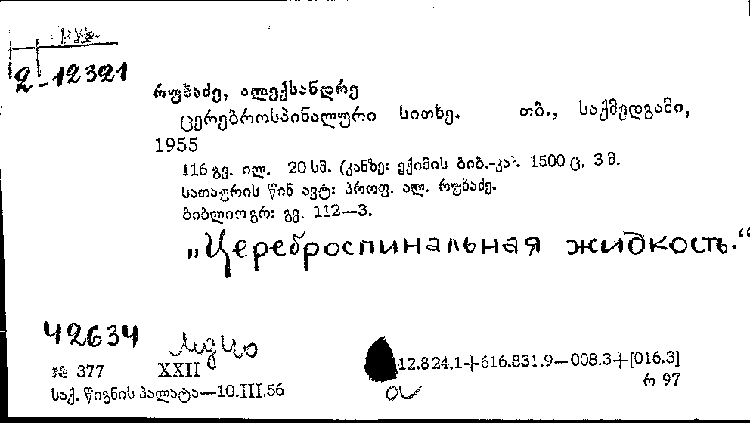 2-12321
რუხაძე, ალექსანდრე
ცერებროსპინალური სითხე. თბ., საქმედგამი,
1955
116 გვ. ილ. 20 სმ. (კანზე: ექიმის ბიბ.-კა). 1500 ც. 3 მ.
სათაურის წინ ავტ: პროფ. ალ. რუხაძე.
ბიბლიოგრ: გვ. 112—3.
„Цереброспинальная жидкость.“
42634
№ 377 XXII
12.824.1+616.831.9—008.3+[016.3]
საქ. წიგნის პალატა—10.III.56
რ 97